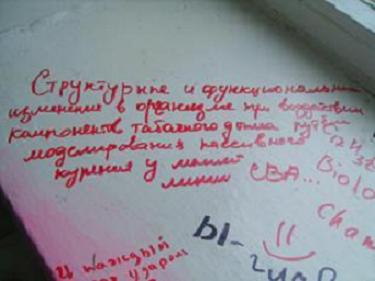 Структурные и функциональные
изменение в организме при воздействии
компонентов табачного дыма путём
моделирования пассивного
курения у мышей
линии CBA...
Biolo
Cham
Ы-
и каждый
ударом